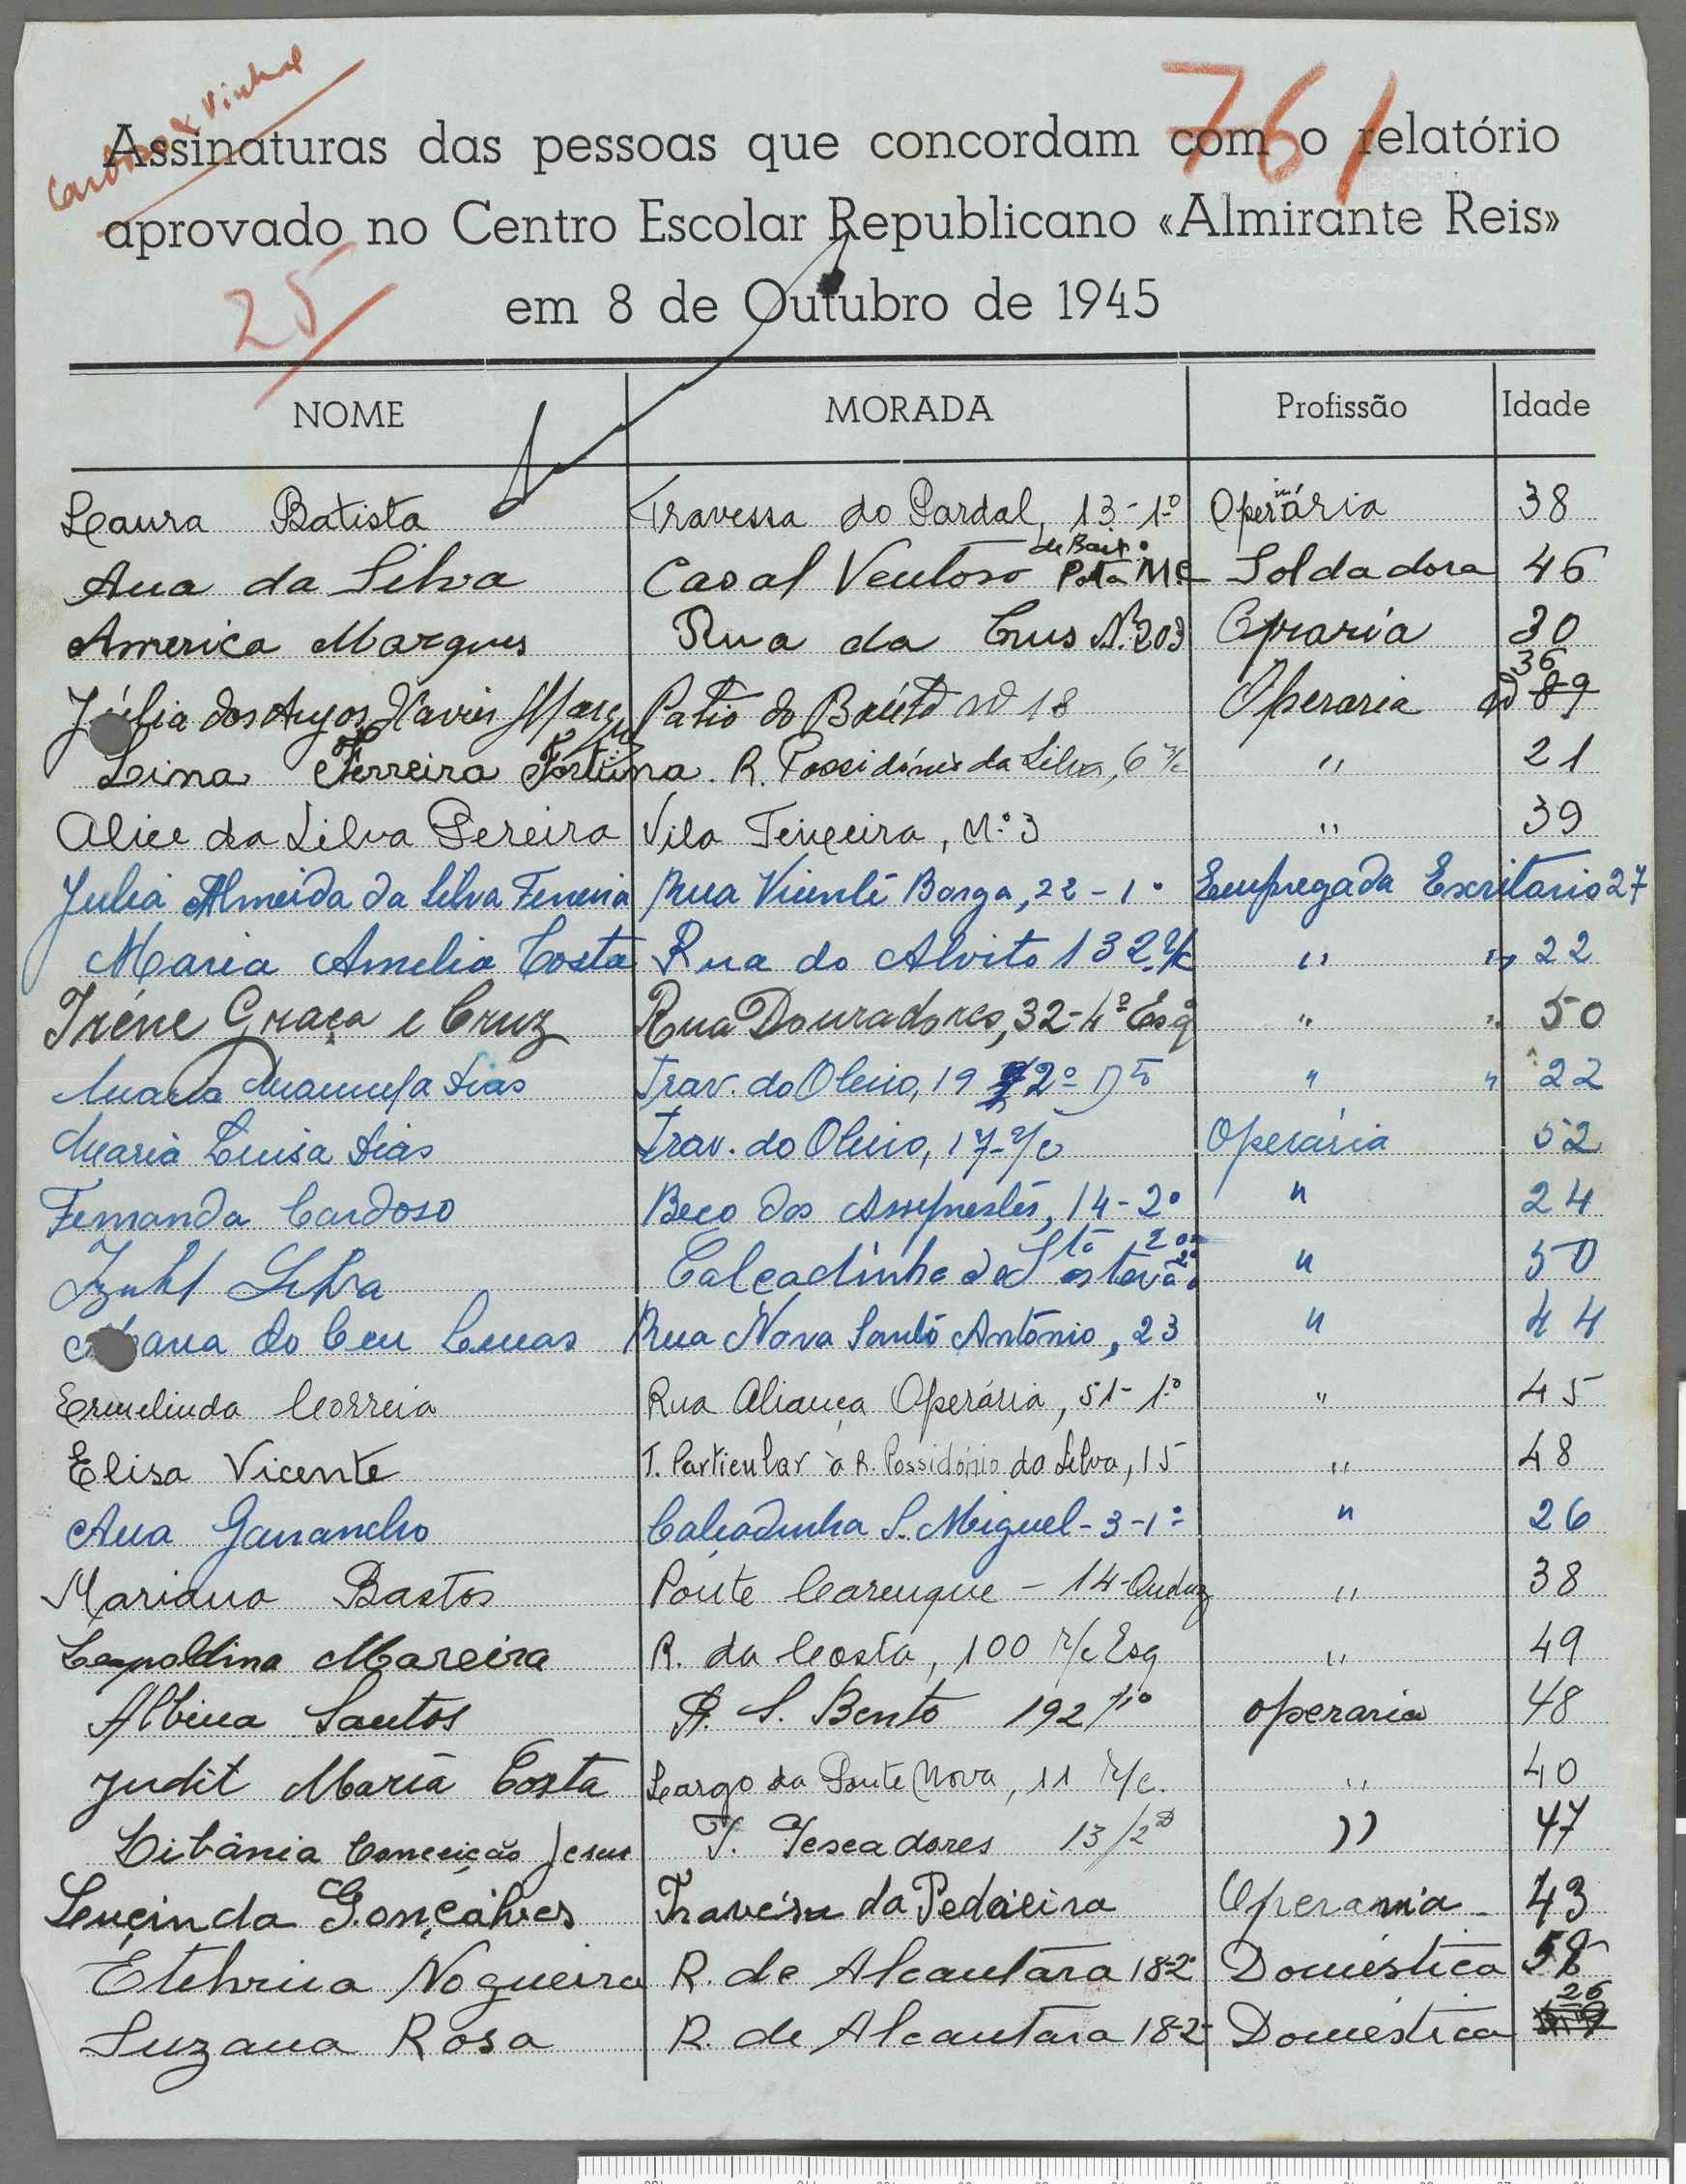 Cardoso & Vinhal
761
Assinaturas das pessoas que concordam com o relatório
aprovado no Centro Escolar Republicano «Almirante Reis»
em 8 de Outubro de 1945
25
NOME MORADA Profissão Idade
Laura Batista Travessa do Pardal, 13-1º Operária 38
Ana da Silva Casal Ventoso de Baixo Porta M.C. Soldadora 46
America Marques Rua da Crus N.º 203 Opraria 30
Júlia dos Anjos Xavier Marques Patio do Nº 18 Operaria 36
Leina Ferreira Fortuna R. Possidónio da Silva, 6 r/c " 21
Alice da Silva Pereira Vila Teixeira, N.º 3 " 39
Julia Almeida da Silva Ferreira Rua Vicente Borga, 22-1º Empregada Escritorio 27
Maria Amelia Costa Rua do Alvito 132 r/c " " 22
Iréne Graça e Cruz Rua Douradores, 32-4º Esq " " 50
Maria Manuela Dias Trav. do Oleiro, 19 2º Dtº " " 22
Maria Luisa Dias Trav. do Oleiro, 17-r/c Operária 52
Fernanda Cardoso Beco dos, 14-2º " 24
Silva Calçadinha de Stº Estevão 20 2º " 50
Maria do Ceu Lucas Rua Nova Santo António, 23 " 44
Ermelinda Correia Rua Aliança Operária, 51-1º " 45
Elisa Vicente T. Particular à R. Possidónio da Silva, 15 " 48
Ana Ganancho Calçadinha S. Miguel-3-1º " 26
Mariana Bastos Ponte Carenque - 14- " 38
Leopoldina Mareira R. da Costa, 100 r/c Esq " 49
Albina Santos R. S. Bento 192 1º operaria 48
Judit Maria Costa Largo da Ponte Nova, 11 r/c. " 40
Libânia Conceição Jesus T. Pescadores 13/2º " 47
Luçinda Gonçalves Travésa da Pedreira Operaria 43
Etelvina Nogueira R. de Alcantara 18-2º Doméstica 58
Suzana Rosa R. de Alcantara 18-2º Doméstica 26